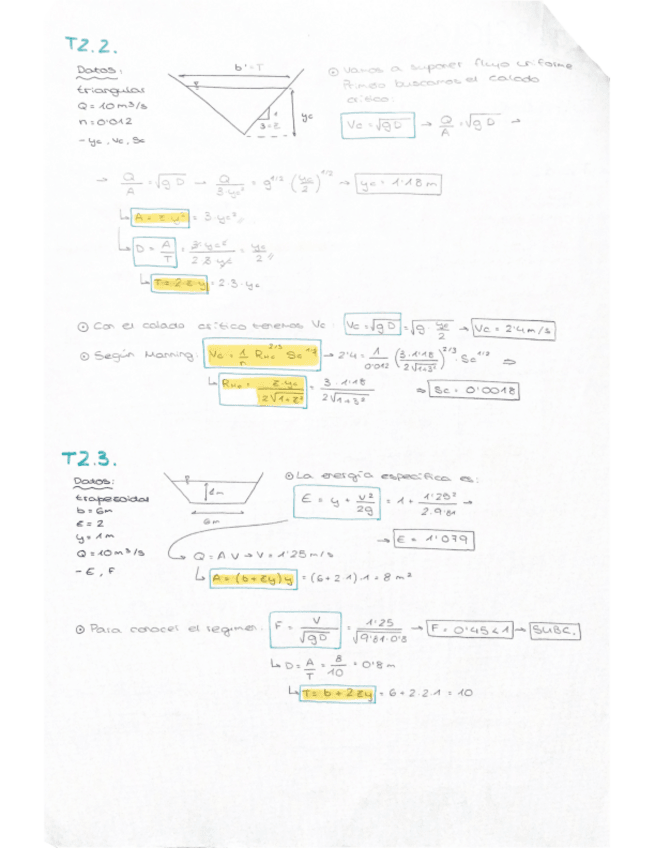 T2.2.
Datos:
triangular
Q = 10 m3/s
n = 0'012
- yc, Vc, Sc
b' = T
1
3 = z
yc
⊙ Vamos a suponer flujo uniforme
Primero buscamos el calado
crítico:
Vc = √gD → Q/A = √gD →
→ Q/A = √gD → Q/3·yc² = g^1/2 (yc/2)^1/2 → yc = 1'18 m
A = z·y² = 3·yc²
D = A/T = 3·yc²/2·3·yc = yc/2
T = 2·z·y = 2·3·yc
⊙ Con el calado crítico tenemos Vc: Vc = √gD = √g·yc/2 → Vc = 2'4 m/s
⊙ Según Manning: Vc = 1/n R_Hc^2/3 Sc^1/2 → 2'4 = 1/0'012 (3·1'18/2√1+3²)^2/3 · Sc^1/2 ⇒
R_Hc = z·yc/2√1+z² = 3·1'18/2√1+3² ⇒ Sc = 0'0018
T2.3.
Datos:
trapezoidal
b = 6m
z = 2
y = 1m
Q = 10 m3/s
- E, F
1m
6m
⊙ La energía específica es:
E = y + v²/2g = 1 + 1'25²/2·9'81 →
→ E = 1'079
Q = A·V → V = 1'25 m/s
A = (b + zy)y = (6+2·1)·1 = 8 m²
⊙ Para conocer el regimen: F = V/√gD = 1'25/√9'81·0'8 → F = 0'45 < 1 → SUBC.
D = A/T = 8/10 = 0'8 m
T = b + 2zy = 6 + 2·2·1 = 10